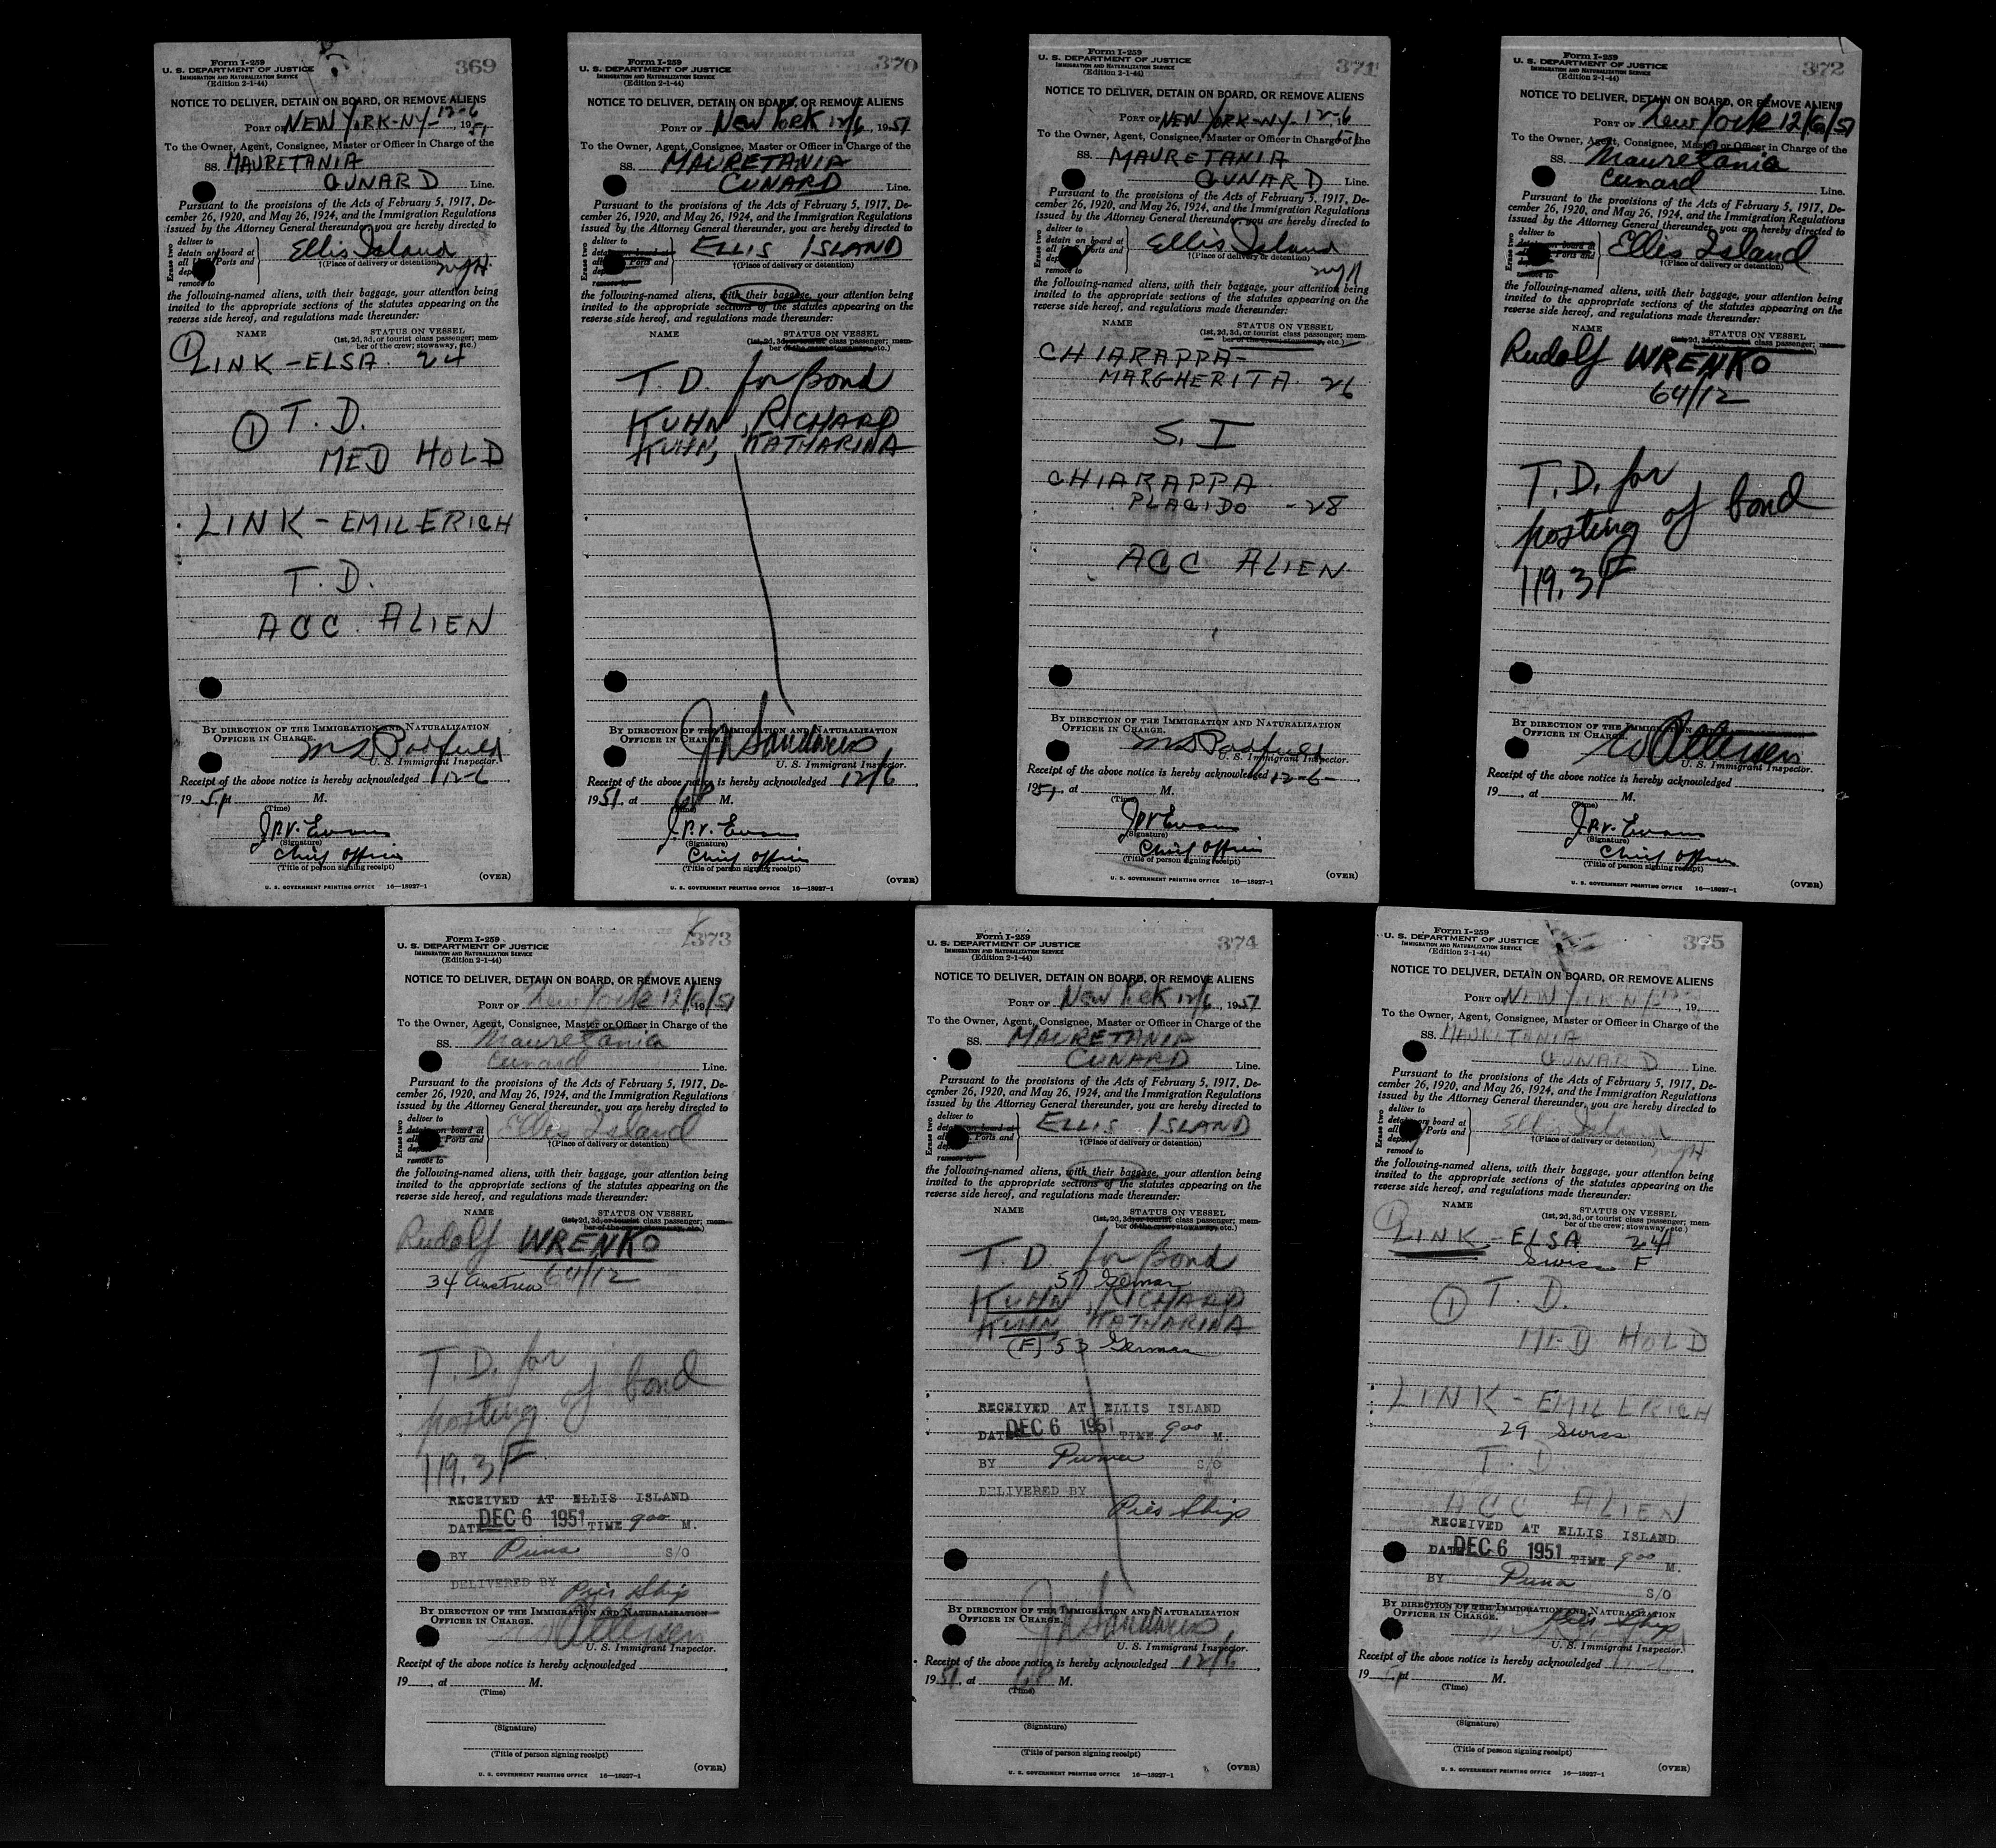 Form I-259
U. S. DEPARTMENT OF JUSTICE
IMMIGRATION AND NATURALIZATION SERVICE
(Edition 2-1-44)
369
NOTICE TO DELIVER, DETAIN ON BOARD, OR REMOVE ALIENS
PORT OF NEW YORK-NY- 12-6, 1951
To the Owner, Agent, Consignee, Master or Officer in Charge of the
SS. MAURETANIA
CUNARD Line.
Pursuant to the provisions of the Acts of February 5, 1917, De-
cember 26, 1920, and May 26, 1924, and the Immigration Regulations
issued by the Attorney General thereunder, you are hereby directed to
Erase two
deliver to
detain on board at
all Ports and
remove to
Ellis Island
†(Place of delivery or detention)
the following-named aliens, with their baggage, your attention being
invited to the appropriate sections of the statutes appearing on the
reverse side hereof, and regulations made thereunder:
NAME
STATUS ON VESSEL
(1st, 2d, 3d, or tourist class passenger; mem-
ber of the crew; stowaway, etc.)
① LINK - ELSA 24
① T. D.
MED HOLD
LINK - EMIL ERICH
T. D.
ACC. ALIEN
BY DIRECTION OF THE IMMIGRATION AND NATURALIZATION
OFFICER IN CHARGE.
U. S. Immigrant Inspector.
Receipt of the above notice is hereby acknowledged 12-6
1951, at M.
(Time)
J.P.V. Evans
(Signature)
Chief Officer
(Title of person signing receipt)
U. S. GOVERNMENT PRINTING OFFICE 16—18927-1
(OVER)
Form I-259
U. S. DEPARTMENT OF JUSTICE
IMMIGRATION AND NATURALIZATION SERVICE
(Edition 2-1-44)
370
NOTICE TO DELIVER, DETAIN ON BOARD, OR REMOVE ALIENS
PORT OF New York 12/6, 1951
To the Owner, Agent, Consignee, Master or Officer in Charge of the
SS. MAURETANIA
CUNARD Line.
Pursuant to the provisions of the Acts of February 5, 1917, De-
cember 26, 1920, and May 26, 1924, and the Immigration Regulations
issued by the Attorney General thereunder, you are hereby directed to
Erase two
deliver to
detain on board at
all Ports and
remove to
ELLIS ISLAND
†(Place of delivery or detention)
the following-named aliens, with their baggage, your attention being
invited to the appropriate sections of the statutes appearing on the
reverse side hereof, and regulations made thereunder:
NAME
STATUS ON VESSEL
(1st, 2d, 3d, or tourist class passenger; mem-
ber of the crew; stowaway, etc.)
T. D. for Bond
KUHN, RICHARD
KUHN, KATHARINA
BY DIRECTION OF THE IMMIGRATION AND NATURALIZATION
OFFICER IN CHARGE.
U. S. Immigrant Inspector.
Receipt of the above notice is hereby acknowledged 12/6
1951, at M.
(Time)
J.P.V. Evans
(Signature)
Chief Officer
(Title of person signing receipt)
U. S. GOVERNMENT PRINTING OFFICE 16—18927-1
(OVER)
Form I-259
U. S. DEPARTMENT OF JUSTICE
IMMIGRATION AND NATURALIZATION SERVICE
(Edition 2-1-44)
371
NOTICE TO DELIVER, DETAIN ON BOARD, OR REMOVE ALIENS
PORT OF NEW YORK-NY- 12-6
To the Owner, Agent, Consignee, Master or Officer in Charge of the
SS. MAURETANIA
CUNARD Line.
Pursuant to the provisions of the Acts of February 5, 1917, De-
cember 26, 1920, and May 26, 1924, and the Immigration Regulations
issued by the Attorney General thereunder, you are hereby directed to
Erase two
deliver to
detain on board at
all Ports and
remove to
Ellis Island
†(Place of delivery or detention)
the following-named aliens, with their baggage, your attention being
invited to the appropriate sections of the statutes appearing on the
reverse side hereof, and regulations made thereunder:
NAME
STATUS ON VESSEL
(1st, 2d, 3d, or tourist class passenger; mem-
ber of the crew; stowaway, etc.)
CHIARAPPA-
MARGHERITA 26
S. I
CHIARAPPA
PLACIDO - 28
ACC ALIEN
BY DIRECTION OF THE IMMIGRATION AND NATURALIZATION
OFFICER IN CHARGE.
U. S. Immigrant Inspector.
Receipt of the above notice is hereby acknowledged 12-6-
1951, at M.
(Time)
J.P.V. Evans
(Signature)
Chief Officer
(Title of person signing receipt)
U. S. GOVERNMENT PRINTING OFFICE 16—18927-1
(OVER)
Form I-259
U. S. DEPARTMENT OF JUSTICE
IMMIGRATION AND NATURALIZATION SERVICE
(Edition 2-1-44)
372
NOTICE TO DELIVER, DETAIN ON BOARD, OR REMOVE ALIENS
PORT OF New York 12/6/51
To the Owner, Agent, Consignee, Master or Officer in Charge of the
SS. Mauretania
Cunard Line.
Pursuant to the provisions of the Acts of February 5, 1917, De-
cember 26, 1920, and May 26, 1924, and the Immigration Regulations
issued by the Attorney General thereunder, you are hereby directed to
Erase two
deliver to
detain on board at
all Ports and
remove to
Ellis Island
†(Place of delivery or detention)
the following-named aliens, with their baggage, your attention being
invited to the appropriate sections of the statutes appearing on the
reverse side hereof, and regulations made thereunder:
NAME
STATUS ON VESSEL
(1st, 2d, 3d, or tourist class passenger; mem-
Rudolf WRENKO
64/12
T. D. for
posting of bond
119.3F
BY DIRECTION OF THE IMMIGRATION
OFFICER IN CHARGE.
U. S. Immigrant Inspector.
Receipt of the above notice is hereby acknowledged
19 , at M.
(Time)
J.P.V. Evans
(Signature)
Chief Officer
(Title of person signing receipt)
U. S. GOVERNMENT PRINTING OFFICE 16—18927-1
(OVER)
Form I-259
U. S. DEPARTMENT OF JUSTICE
IMMIGRATION AND NATURALIZATION SERVICE
(Edition 2-1-44)
373
NOTICE TO DELIVER, DETAIN ON BOARD, OR REMOVE ALIENS
PORT OF New York 12/6/1951
To the Owner, Agent, Consignee, Master or Officer in Charge of the
SS. Mauretania
Cunard Line.
Pursuant to the provisions of the Acts of February 5, 1917, De-
cember 26, 1920, and May 26, 1924, and the Immigration Regulations
issued by the Attorney General thereunder, you are hereby directed to
Erase two
deliver to
detain on board at
all Ports and
remove to
Ellis Island
†(Place of delivery or detention)
the following-named aliens, with their baggage, your attention being
invited to the appropriate sections of the statutes appearing on the
reverse side hereof, and regulations made thereunder:
NAME
STATUS ON VESSEL
(1st, 2d, 3d, or tourist class passenger; mem-
ber of the crew; stowaway, etc.)
Rudolf WRENKO
34 Austria 64/12
T. D. for
posting of bond
119.3F
RECEIVED AT ELLIS ISLAND
DATE DEC 6 1951 TIME 900 M.
BY S/O
DELIVERED BY Pier Ship
BY DIRECTION OF THE IMMIGRATION AND NATURALIZATION
OFFICER IN CHARGE.
U. S. Immigrant Inspector.
Receipt of the above notice is hereby acknowledged
19 , at M.
(Time)
(Signature)
(Title of person signing receipt)
U. S. GOVERNMENT PRINTING OFFICE 16—18927-1
(OVER)
Form I-259
U. S. DEPARTMENT OF JUSTICE
IMMIGRATION AND NATURALIZATION SERVICE
(Edition 2-1-44)
374
NOTICE TO DELIVER, DETAIN ON BOARD, OR REMOVE ALIENS
PORT OF New York 12/6, 1951
To the Owner, Agent, Consignee, Master or Officer in Charge of the
SS. MAURETANIA
CUNARD Line.
Pursuant to the provisions of the Acts of February 5, 1917, De-
cember 26, 1920, and May 26, 1924, and the Immigration Regulations
issued by the Attorney General thereunder, you are hereby directed to
Erase two
deliver to
detain on board at
all Ports and
remove to
ELLIS ISLAND
†(Place of delivery or detention)
the following-named aliens, with their baggage, your attention being
invited to the appropriate sections of the statutes appearing on the
reverse side hereof, and regulations made thereunder:
NAME
STATUS ON VESSEL
(1st, 2d, 3d, or tourist class passenger; mem-
ber of the crew; stowaway, etc.)
T. D for Bond
57 German
KUHN, RICHARD
KUHN KATHARINA
(F) 53 German
RECEIVED AT ELLIS ISLAND
DATE DEC 6 1951 TIME 900 M.
BY S/O
DELIVERED BY
Pier Ship
BY DIRECTION OF THE IMMIGRATION AND NATURALIZATION
OFFICER IN CHARGE.
U. S. Immigrant Inspector.
Receipt of the above notice is hereby acknowledged 12/6
1951, at M.
(Time)
(Signature)
(Title of person signing receipt)
U. S. GOVERNMENT PRINTING OFFICE 16—18927-1
(OVER)
Form I-259
U. S. DEPARTMENT OF JUSTICE
IMMIGRATION AND NATURALIZATION SERVICE
(Edition 2-1-44)
375
NOTICE TO DELIVER, DETAIN ON BOARD, OR REMOVE ALIENS
PORT OF NEW YORK NY 12- , 19
To the Owner, Agent, Consignee, Master or Officer in Charge of the
SS. MAURETANIA
CUNARD Line.
Pursuant to the provisions of the Acts of February 5, 1917, De-
cember 26, 1920, and May 26, 1924, and the Immigration Regulations
issued by the Attorney General thereunder, you are hereby directed to
Erase two
deliver to
detain on board at
all Ports and
remove to
Ellis Island
†(Place of delivery or detention)
the following-named aliens, with their baggage, your attention being
invited to the appropriate sections of the statutes appearing on the
reverse side hereof, and regulations made thereunder:
NAME
STATUS ON VESSEL
(1st, 2d, 3d, or tourist class passenger; mem-
ber of the crew; stowaway, etc.)
① LINK - ELSA 24
Swiss F
① T. D.
MED HOLD
LINK - EMIL ERICH
29 Swiss
T. D
ACC ALIEN
RECEIVED AT ELLIS ISLAND
DATE DEC 6 1951 TIME 900 M.
BY S/O
Pier Ship
BY DIRECTION OF THE IMMIGRATION AND NATURALIZATION
OFFICER IN CHARGE.
U. S. Immigrant Inspector.
Receipt of the above notice is hereby acknowledged
19 , at M.
(Time)
(Signature)
(Title of person signing receipt)
U. S. GOVERNMENT PRINTING OFFICE 16—18927-1
(OVER)